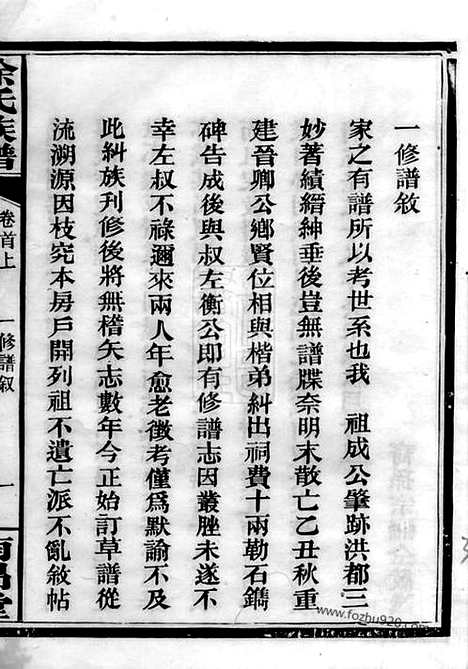 一修譜敘
家之有譜所以考世系也我 祖成公肇跡洪都三
妙著績縉紳垂後豈無譜牒奈明末散亡乙丑秋重
建晉卿公鄉賢位相與楷弟糾出祠費十兩勒石鐫
碑告成後與叔左衡公即有修譜志因叢脞未遂不
幸左叔不祿邇來兩人年愈老徵考僅為默諭不及
此糾族刊修後將無稽矢志數年今正始訂草譜從
流溯源因枝究本房戶開列祖不遺亡派不亂敘帖
余氏族譜
卷首上
一修譜敘
一
堂
www.fozhu920.com